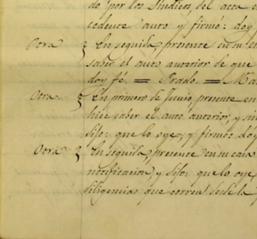 do por los Sindicos del acta
cedence auto y firmó: doy
Otra En seguida, presente en su
saber el auto anterior de que
doy fé. = Prado. = Ma
Otra En primero de Junio, presente en
hice saber el auto anterior, y
dijo: que lo oye, y firmó: doy
Otra En seguida, presente en su casa
notificacion, y dijo: que lo oye
diligencias que corren desde la